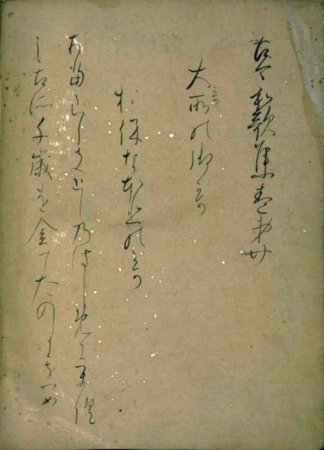 古今和歌集巻第廿
大哥所乃御哥
おほなほひの哥
あたらしきとしのはしめにかく
しこそ千歳を金てたのしきをつめ